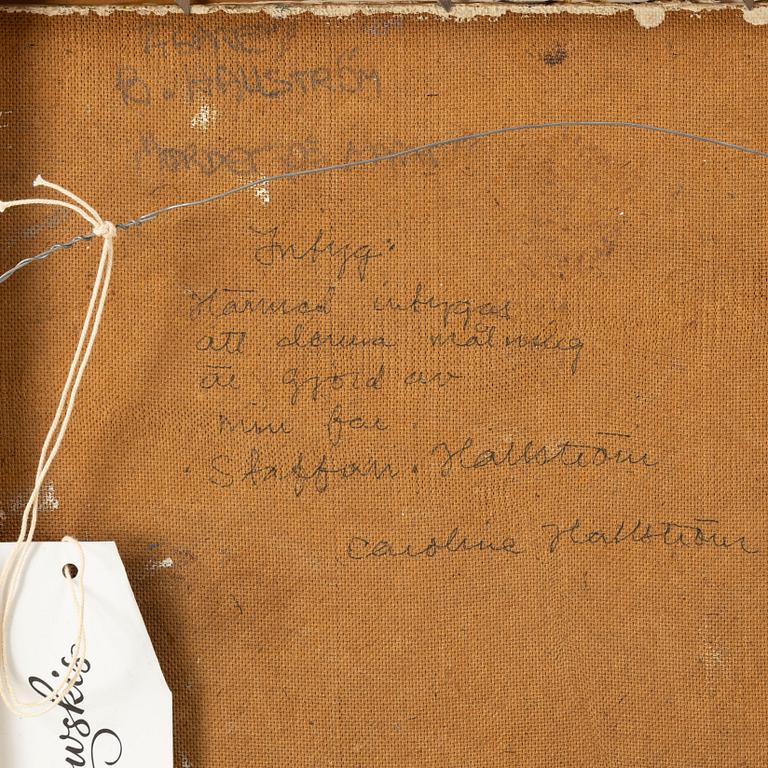 B. HALLSTRÖM
Intyg:
Härmed intygas
att denna målning
är gjord av
min far
Staffan. Hallström
Caroline Hallström
wskis